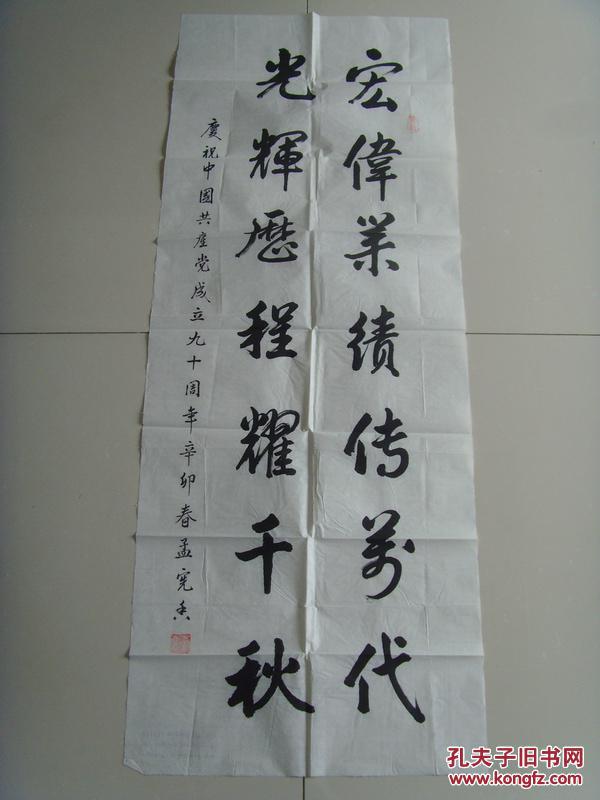 宏偉業績传萬代
光輝歷程耀千秋
慶祝中國共産党成立九十周年辛卯春孟宪
孔夫子旧书网
www.kongfz.com